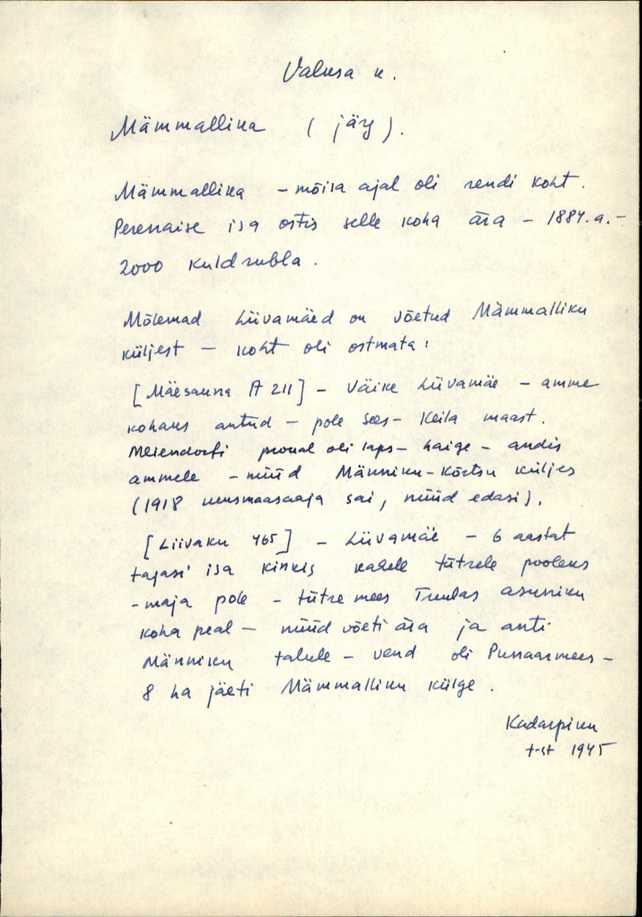 Valusa k.
Mämmalliku ( järg ).
Mämmalliku – mõisa ajal oli rendi koht.
Perenaise isa ostis selle koha ära – 1884.a. –
2000 kuldrubla.
Mõlemad Liivamäed on võetud Mämmalliku
küljest – koht oli ostmata:
[Mäesauna A 211] – Väike Liivamäe – amme
kohaks antud – pole sees – Keila maast.
Meiendorfi proual oli laps – haige – andis
ammele – nüüd Männiku-Kõrtsu küljes
(1918 uusmaasaaja sai, nüüd edasi).
[Liivaku 465] – Liivamäe – 6 aastat
tagasi isa kinkis kahele tütrele pooleks
– maja pole – tütre mees Tuulas asuniku
koha peal – nüüd võeti ära ja anti
Männiku talule – vend oli Punaarmees –
8 ha jäeti Mämmalliku külge.
Kadarpiku
t-st 1945